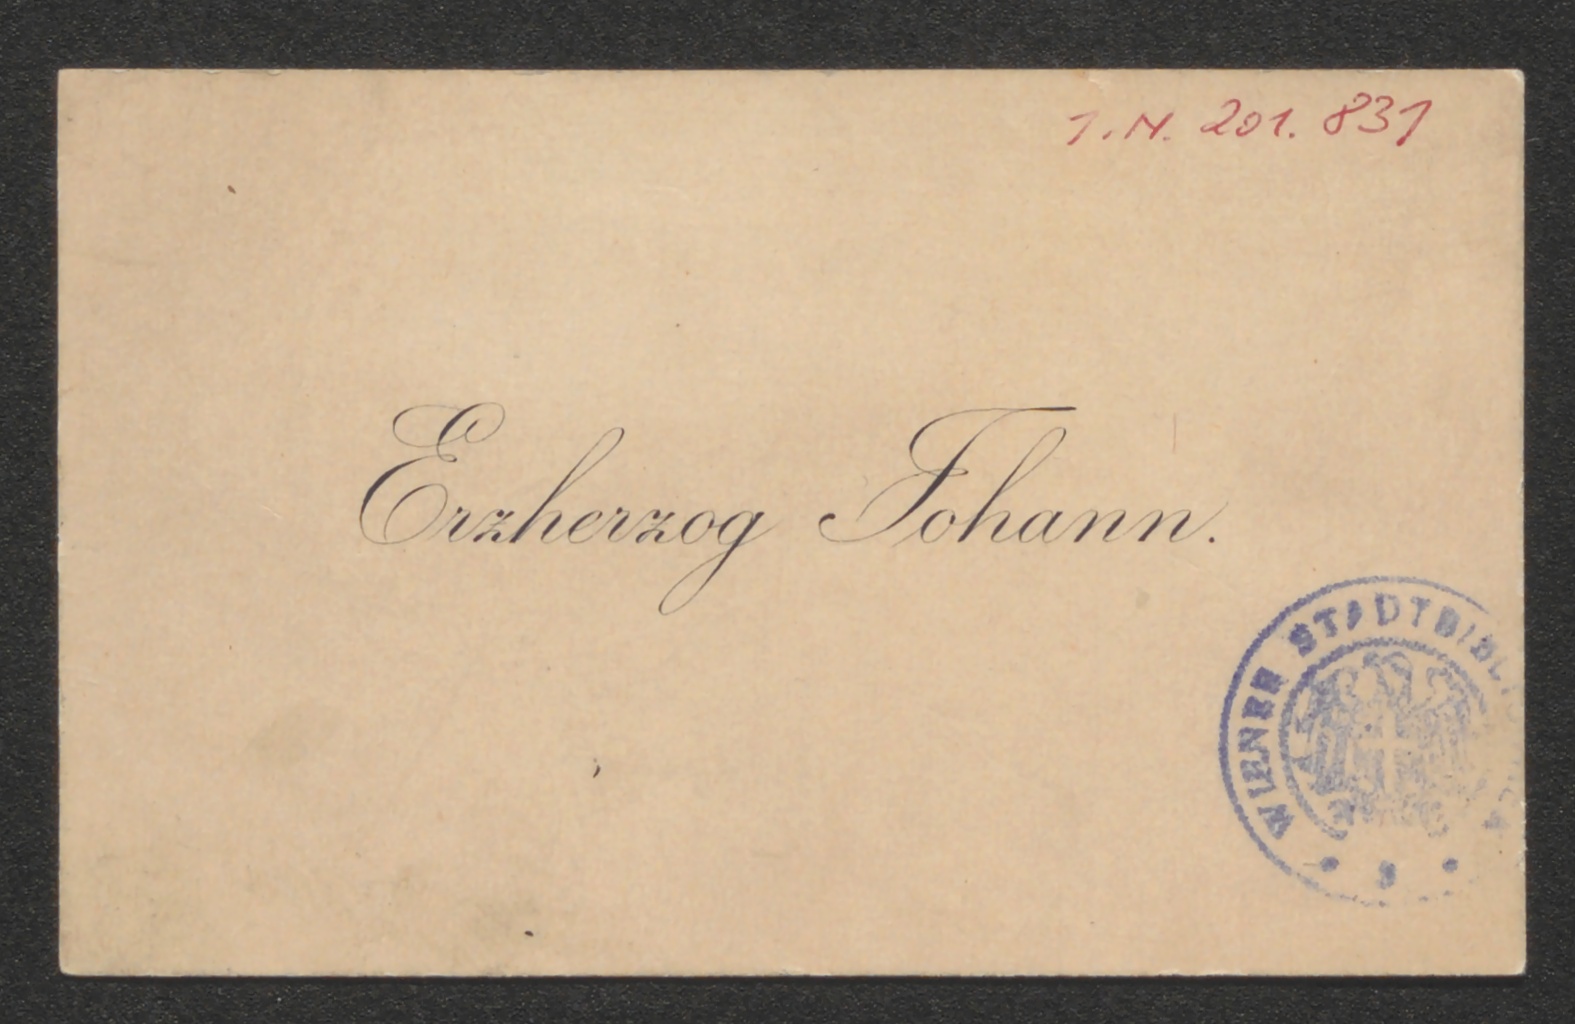 1.N. 201.831
Erzherzog Johann.
WIENER STADTBIBLIOTHEK